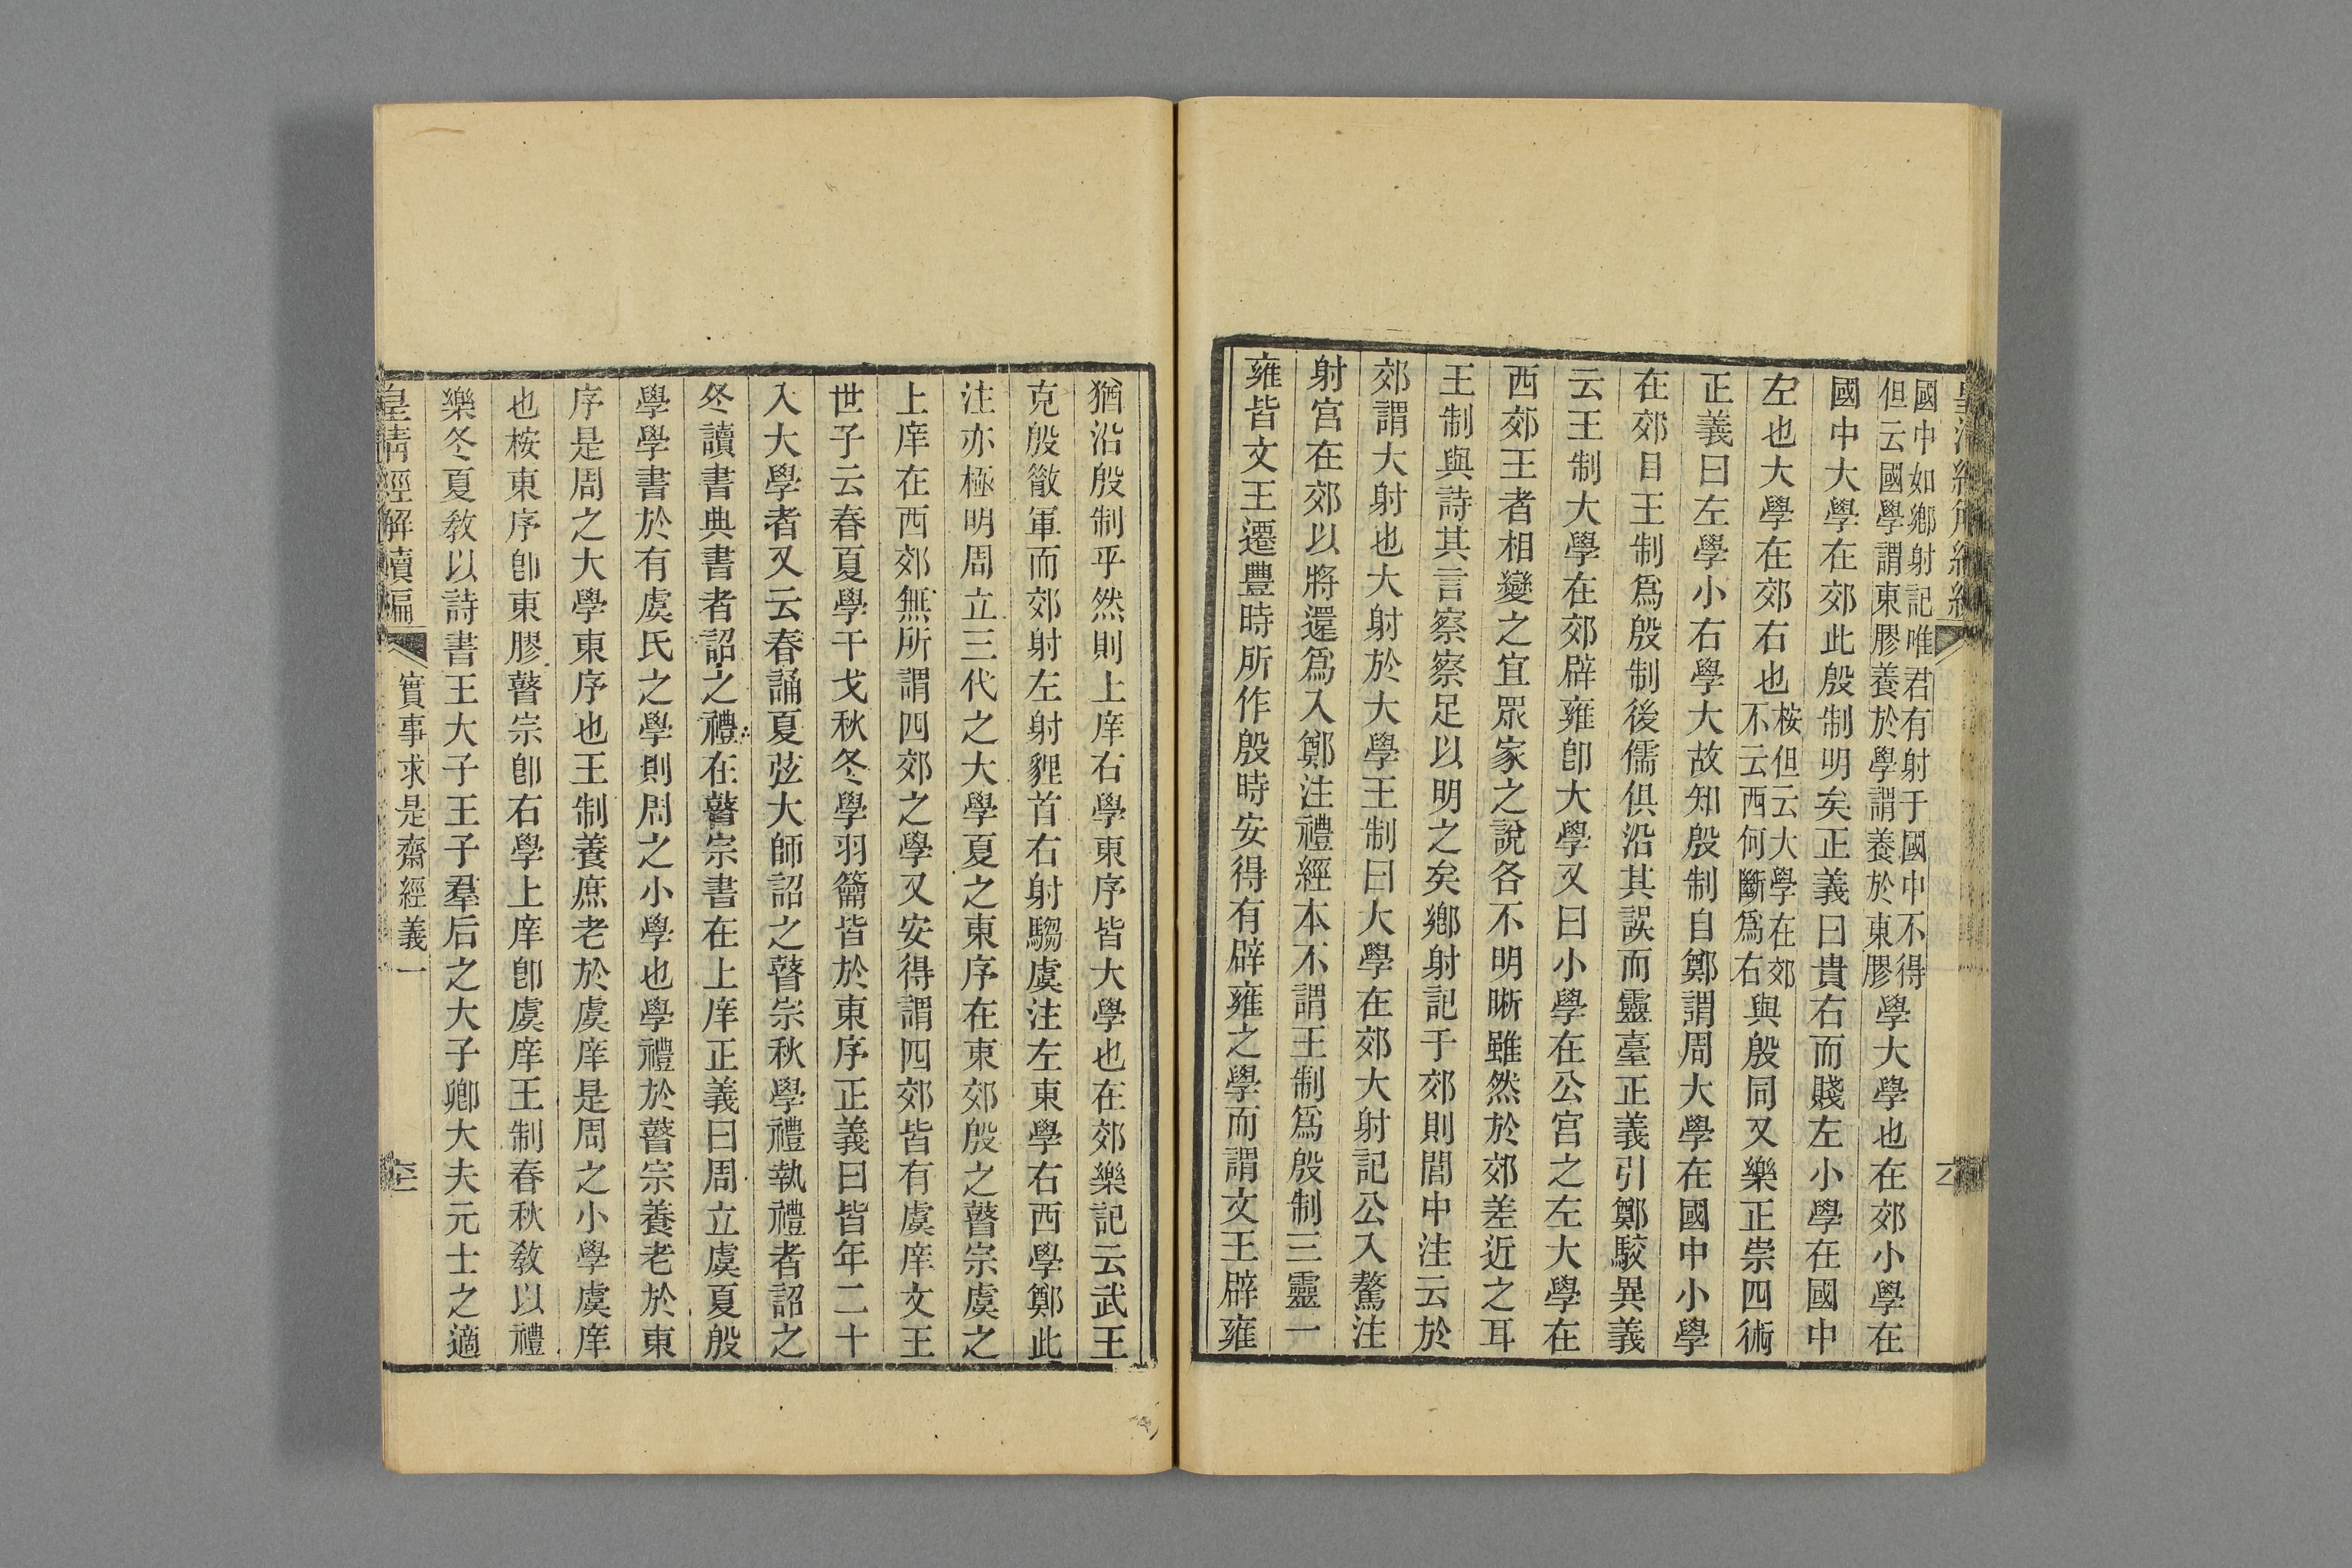 國中如鄉射記唯君有射于國中不得
但云國學謂東膠養於學謂養於東膠
學大學也在郊小學在
國中大學在郊此殷制明矣正義曰貴右而賤左小學在國中
左也大學在郊右也
桉但云大學在郊
不云西何斷爲右
與殷同又樂正崇四術
正義曰左學小右學大故知殷制自鄭謂周大學在國中小學
在郊目王制爲殷制後儒俱沿其誤而靈臺正義引鄭駮異義
云王制大學在郊辟雍卽大學又曰小學在公宮之左大學在
西郊王者相變之宜眾家之說各不明晰雖然於郊差近之耳
王制與詩其言察察足以明之矣鄉射記于郊則閭中注云於
郊謂大射也大射於大學王制曰大學在郊大射記公入驁注
射宮在郊以將還爲入鄭注禮經本不謂王制爲殷制三靈一
雍皆文王遷豐時所作殷時安得有辟雍之學而謂文王辟雍
猶沿殷制乎然則上庠右學東序皆大學也在郊樂記云武王
克殷散軍而郊射左射貍首右射騶虞注左東學右西學鄭此
注亦極明周立三代之大學夏之東序在東郊殷之瞽宗虞之
上庠在西郊無所謂四郊之學又安得謂四郊皆有虞庠文王
世子云春夏學干戈秋冬學羽籥皆於東序正義曰皆年二十
入大學者又云春誦夏弦大師詔之瞽宗秋學禮執禮者詔之
冬讀書典書者詔之禮在瞽宗書在上庠正義曰周立虞夏殷
學學書於有虞氏之學則周之小學也學禮於瞽宗養老於東
序是周之大學東序也王制養庶老於虞庠是周之小學虞庠
也桉東序卽東膠瞽宗卽右學上庠卽虞庠王制春秋敎以禮
樂冬夏敎以詩書王大子王子羣后之大子卿大夫元士之適
皇清經解續編
實事求是齋經義一